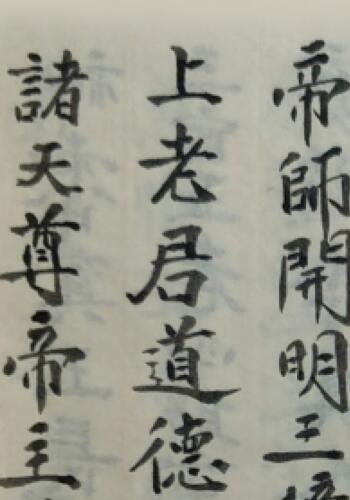 帝師開明三
上老君道德
諸天尊帝主